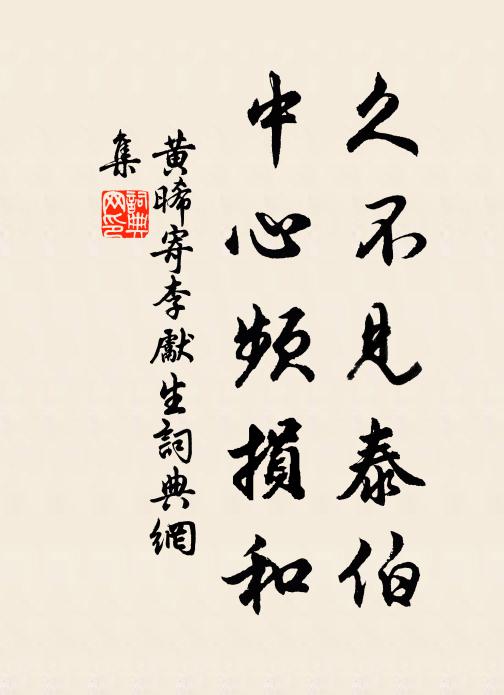 久不見泰伯
中心頻損和
黃晞寄李獻生詞典網
集
詞典
网印